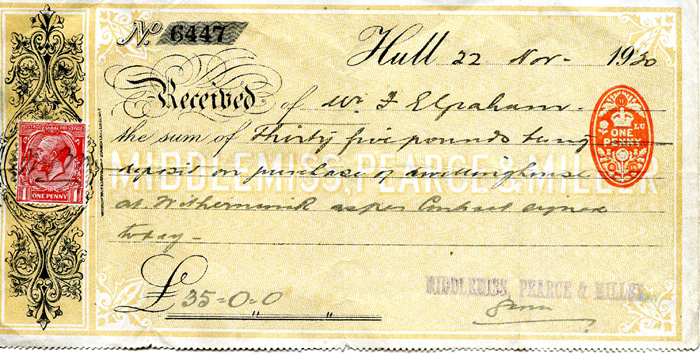 No 6447
Hull 22 Nov- 1920
Received of Mr F E Graham.
the sum of Thirty five pounds being
deposit on purchase of dwellinghouse
at Withernwick as per Contract signed
today -
MIDDLEMISS, PEARCE & MILLER
£ 35=0=0
MIDDLEMISS, PEARCE & MILLER
ONE PENNY
POSTAGE REVENUE
ONE PENNY
1 1